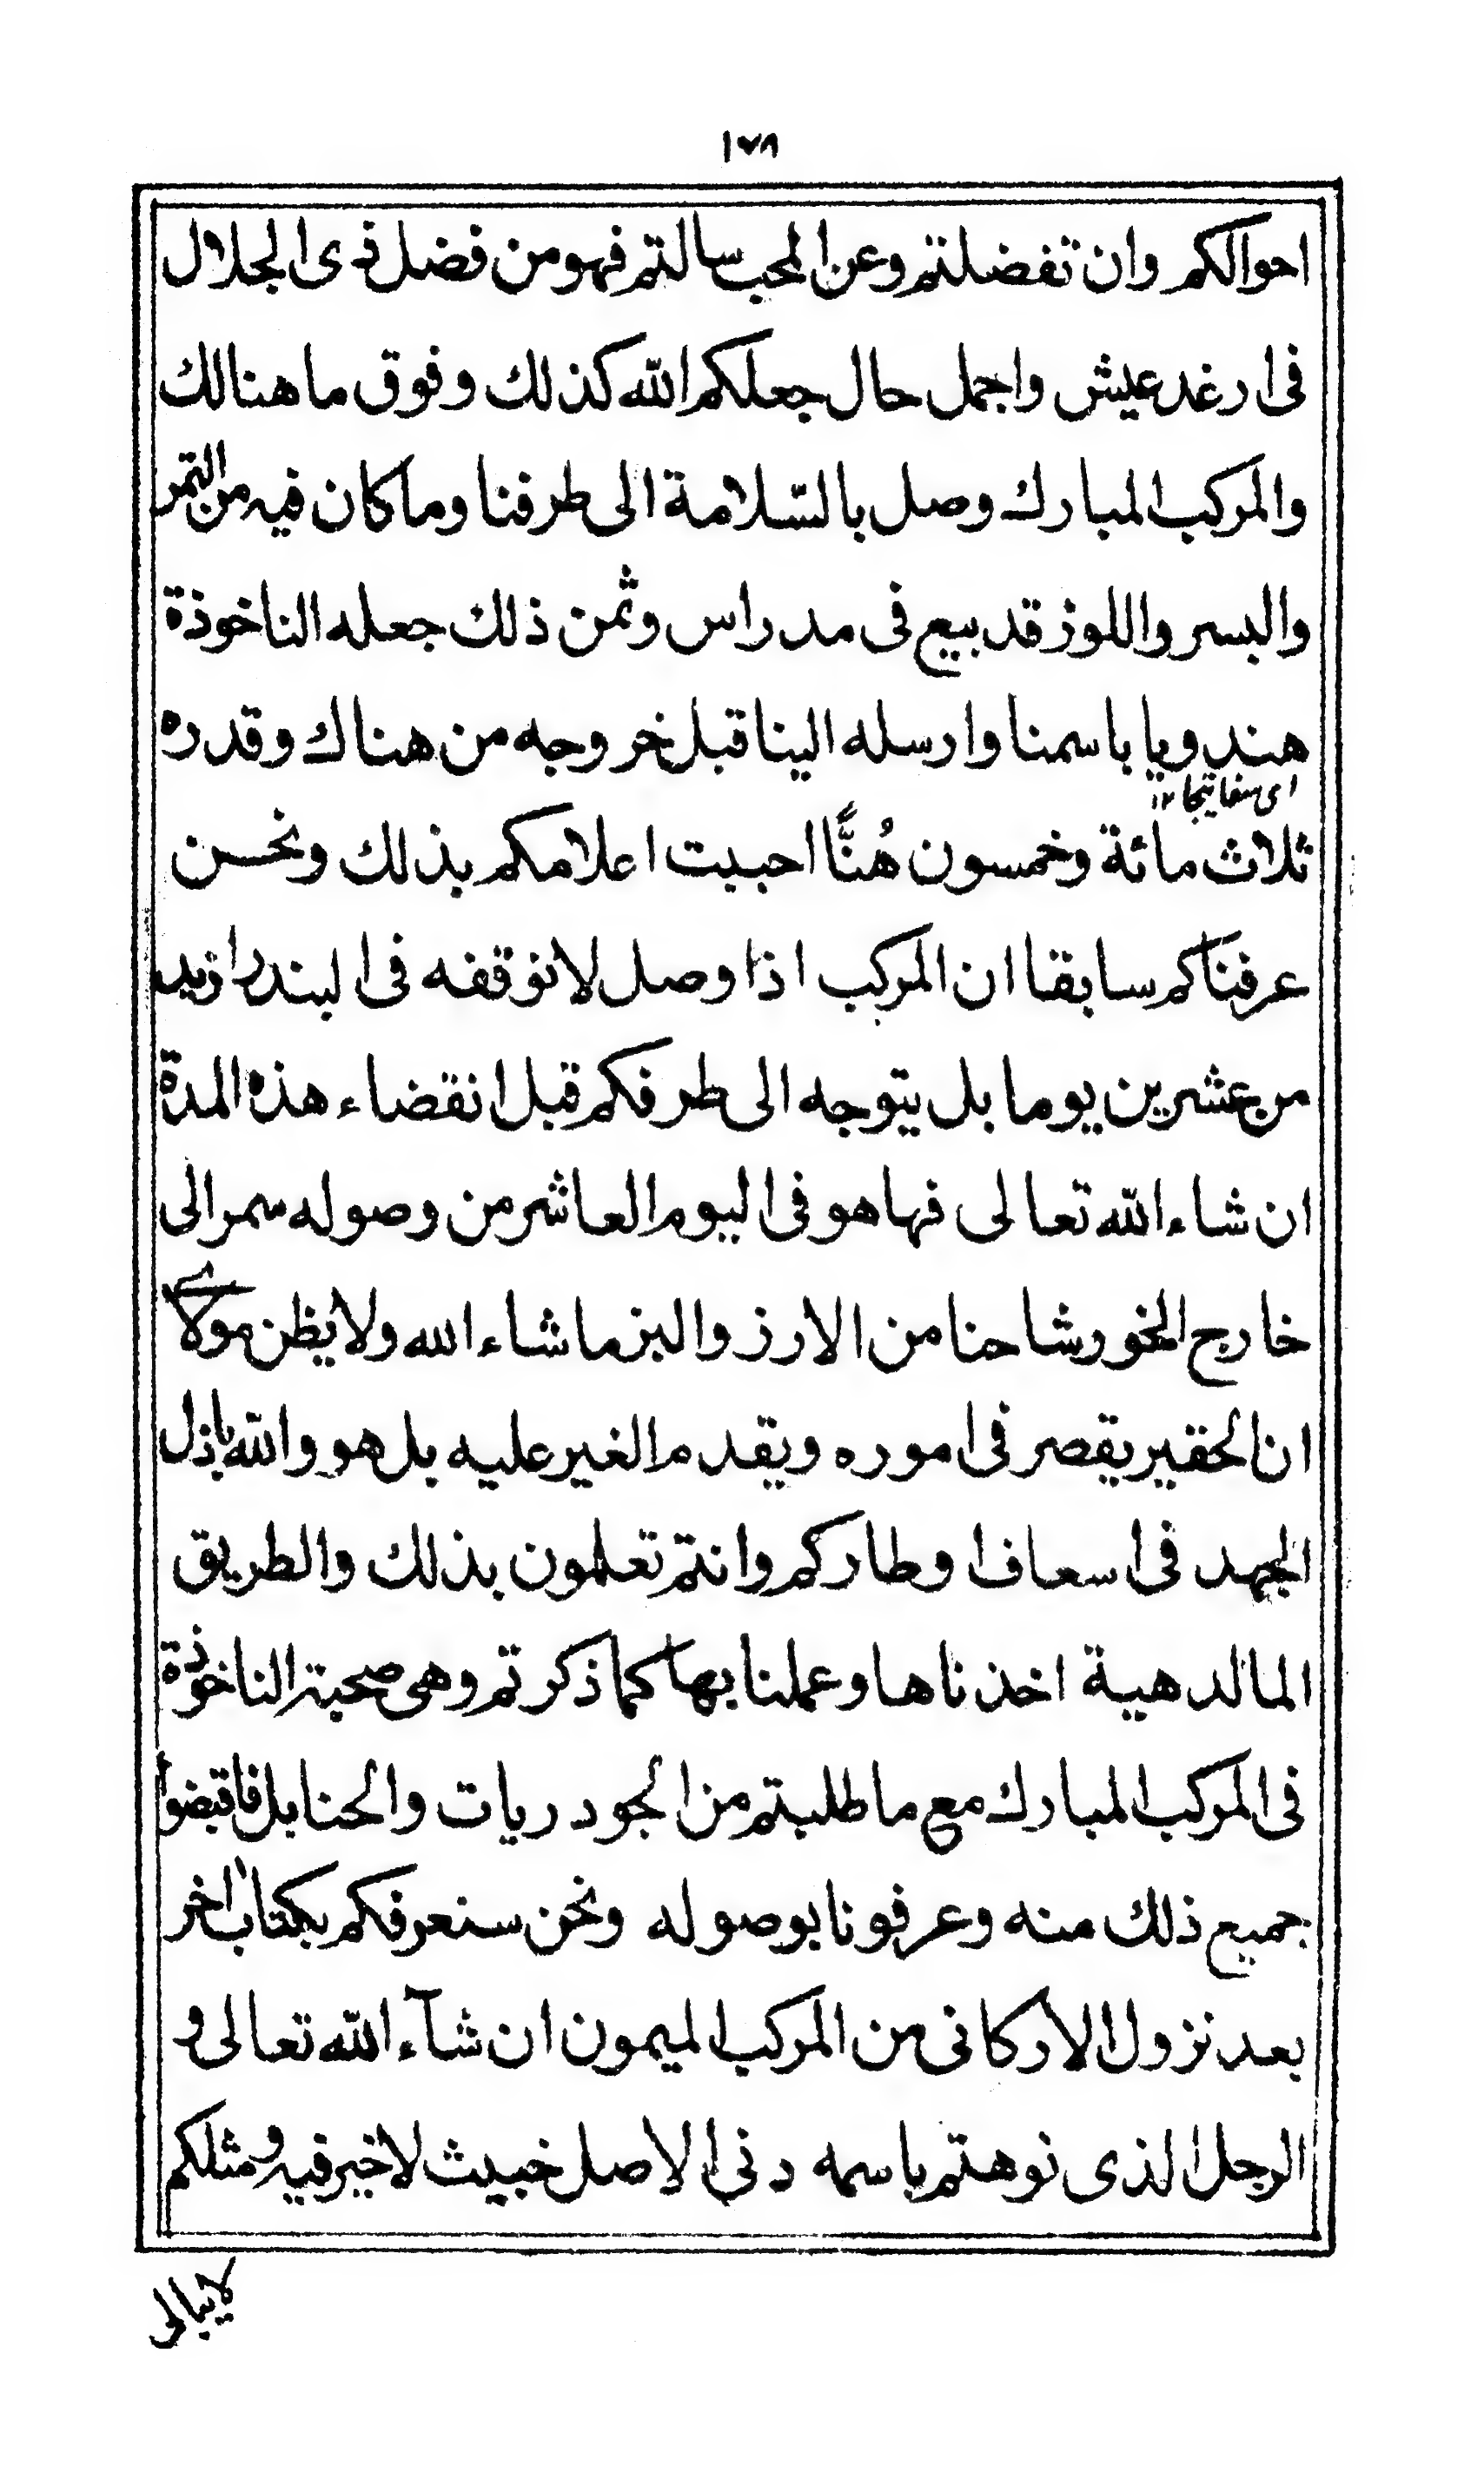 ١٧٨
احوالكم وان تفضلتم وعن المحب سالتم فهو من فضل ذى الجلال
فى ارغد عيش واجمل حال جعلكم الله كذلك وفوق ما هنالك
والمركب المبارك وصل بالسّلامة الى طرفنا وما كان فيه من التمر
والبسر واللوز قد بيع فى مدراس وثمن ذلك جعله الناخوذة
هندويا باسمنا وارسله الينا قبل خروجه من هناك وقدره
اى سفاتيجا ١٢
ثلاث مائة وخمسون هُنًّا احببت اعلامكم بذلك ونحن
عرفناكم سابقا ان المركب اذا وصل لا نوقفه فى البندر ازيد
من عشرين يوما بل يتوجه الى طرفكم قبل انقضاء هذه المدة
ان شاء الله تعالى فها هو فى اليوم العاشر من وصوله سمر الى
خارج الخور شاحنا من الارز والبز ما شاء الله ولا يظن مولاى
ان الحقير يقصر فى اموره ويقدم الغير عليه بل هو والله باذل
الجهد فى اسعاف اوطاركم وانتم تعلمون بذلك والطريق
المالدهية اخذناها وعملنا بها كما ذكرتم وهى صحبة الناخوذة
فى المركب المبارك مع ما طلبتم من الجودريات والحنابل فاقبضوا
جميع ذلك منه وعرفونا بوصوله ونحن سنعرفكم بكتاب اخر
بعد نزول الاركانى من المركب الميمون ان شآء الله تعالى و
الرجل الذى نوهتم باسمه دنى الاصل خبيث لا خير فيه ومثلكم
لا يبالى